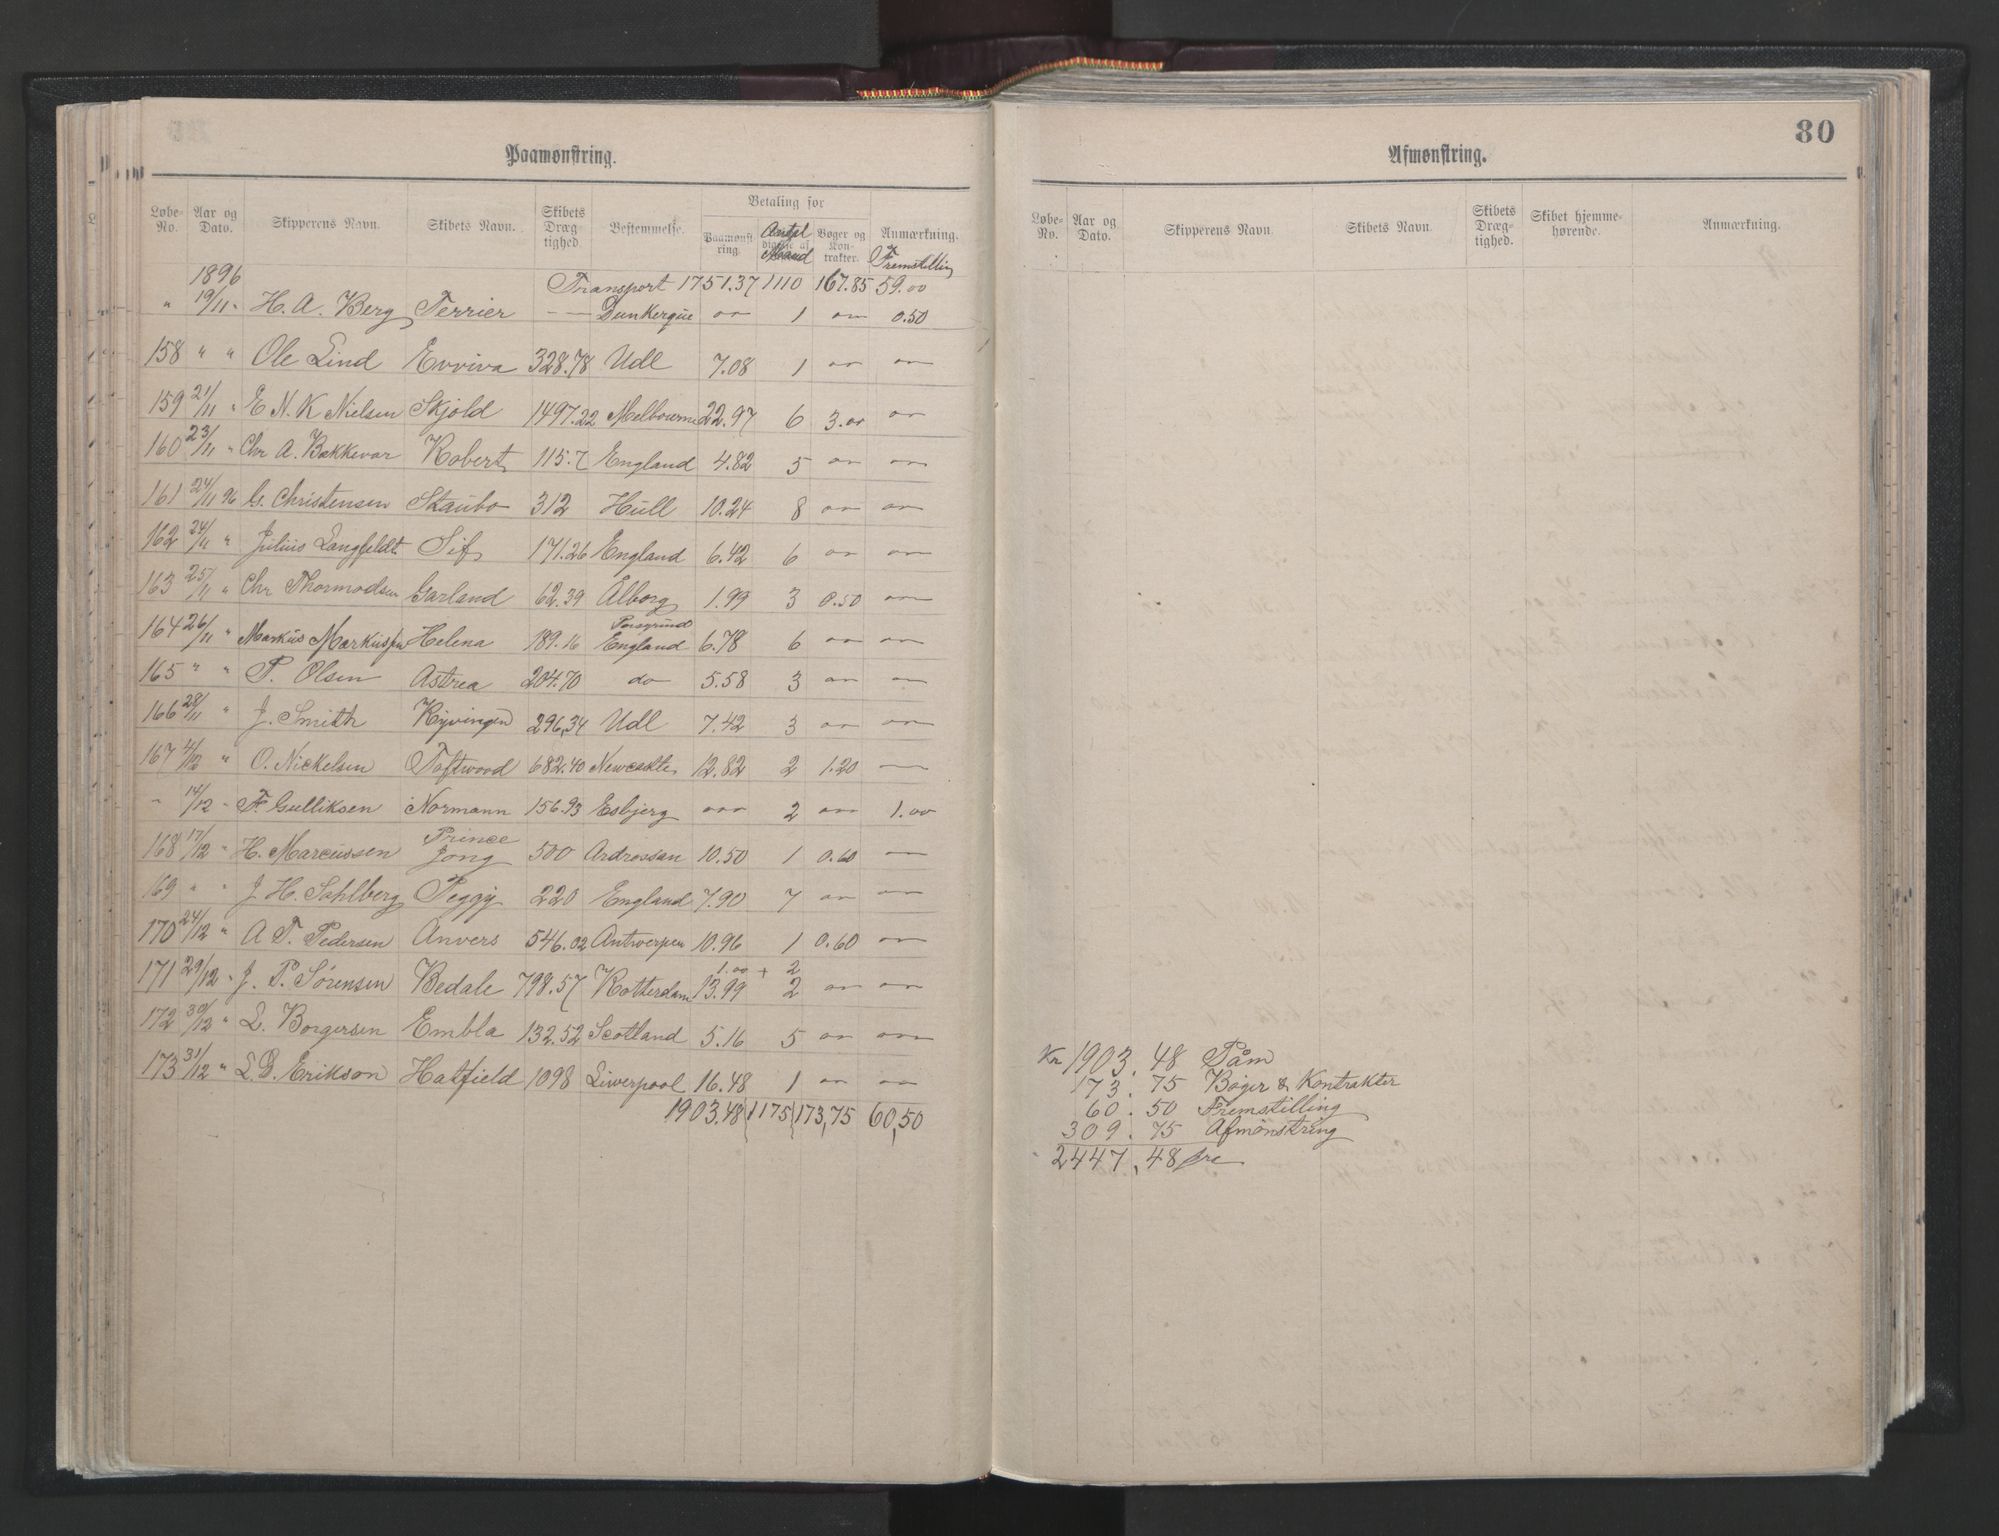 Paamønstring.
Løbe- No. Aar og Dato. Skipperens Navn. Skibets Navn. Skibets Dræg- tighed. Bestemmelse. Betaling for Paamønst- ring. Antal Mand Bøger og Kon- trakter. Anmærkning. Fremstilling
1896 Transport 1751.37 1110 167.85 59.00
" 19/11 - H. A. Berg Terrier — — Dunkerque " 1 " 0.50
158 " " Ole Lind Evviva 328.78 Udl 7.08 1 " "
159 21/11 " E N. K Nielsen Skjold 1497.22 Melbourne 22.97 6 3.00 "
160 23/11 " Chr A. Bakkevar Robert 115.7 England 4.82 5 " "
161 24/11 96 G. Christensen Staubo 312 Hull 10.24 8 " "
162 24/11 " Julius Langfeldt Sif 171.26 England 6.42 6 " "
163 25/11 " Chr Thormodsen Garland 62.39 Ålborg 1.99 3 0.50 "
164 26/11 " Markus Markussen Helena 189.16 Porsgrund England 6.78 6 " "
165 " " P. Olsen Astrea 204.70 do 5.58 3 " "
166 28/11 " J. Smith Kyvingen 296,34 Udl 7.42 3 " "
167 4/12 " O. Nickelsen Toftwood 682.40 Newcastle 12.82 2 1.20 —
" 14/12 - F. Gulliksen Normann 156.93 Esbjerg " 2 " 1.00
168 17/12 " H. Marcussen Prince Jong 500 Ardrossan 10.50 1 0.60 —
169 " " J. H. Sahlberg Peggy 220 England 7.90 7 " "
170 24/12 " A T. Pedersen Anvers 546.02 Antwerpen 10.96 1 0.60 "
1.00 + 2
171 29/12 - J. P. Sørensen Bedale 798.57 Rotterdam 13.99 2 " "
172 30/12 " L. Borgersen Embla 132.52 Scotland 5.16 5 " "
173 31/12 " L. G. Erikson Hatfield 1098 Liwerpool 16.48 1 " "
1903.48 1175 173,75 60,50
80
Afmønstring.
Løbe- No. Aar og Dato. Skipperens Navn. Skibets Navn. Skibets Dræg- tighed. Skibet hjemme- hørende. Anmærkning.
Kr 1903.48 Påm
173.75 Bøger & Kontrakter
60.50 Fremstilling
309.75 Afmönstring
2447.48 øre